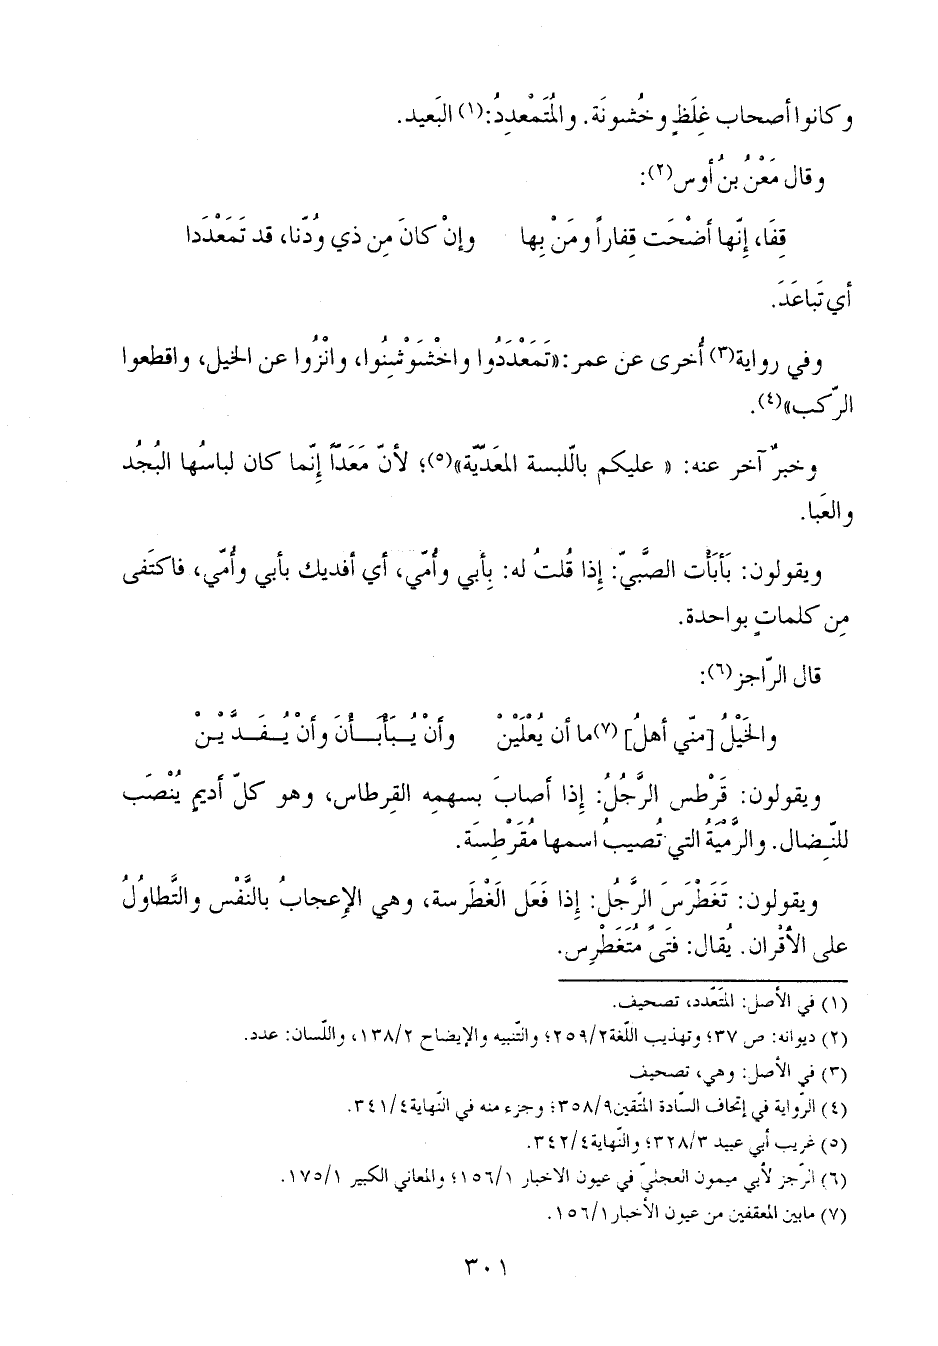 وكانوا أصحاب غِلَظٍ وخُشونَة. والمُتَمْعدِدُ:(١) البَعيد.
وقال مَعْنُ بنُ أوس(٢):
قِفَا، إِنّها أضْحَت قِفاراً ومَنْ بِها وإنْ كانَ مِن ذي وُدّنا، قد تَمَعْدَدا
أي تَباعَدَ.
وفي رواية(٣) أُخرى عن عمر: «تَمَعْدَدُوا واخْشَوْشِنُوا، وانْزُوا عن الخيل، واقطعوا
الرّكب»(٤).
وخبرٌ آخر عنه: « عليكم باللّبسة المعَدّيّة»(٥)؛ لأنّ مَعَدّاً إِنّما كان لباسُها البُجُد
والعَبا.
ويقولون: بَأبَأْت الصَّبيّ: إِذا قُلتُ له: بِأبي وأُمّي، أي أفديك بأبي وأُمّي، فاكتَفى
مِن كلماتٍ بواحدة.
قال الرّاجز(٦):
والخَيْلُ [منّي أهلُ] (٧)ما أن يُعْلَيْنْ وأنْ يُـبَأبَـأْنَ وأنْ يُـفَـدَّيْـنْ
ويقولون: قَرْطس الرَّجُلُ: إِذا أصابَ بسهمِه القِرطاس، وهو كلّ أديمٍ يُنْصَب
للنّضال. والرَّمْيَةُ التي تُصيبُ اسمها مُقَرْطِسَة.
ويقولون: تَغَطْرَسَ الرَّجُل: إِذا فَعَل الغَطْرَسة، وهي الإِعجابُ بالنَّفْس والتَّطاوُلُ
على الأقْران. يُقال: فَتَىً مُتَغَطْرِس.
(١) في الأصل: المتَعدّد، تصحيف.
(٢) ديوانه: ص ٣٧؛ وتهذيب اللّغة٢/٢٥٩؛ والتّنبيه والإيضاح ٢/١٣٨، واللّسان: عدد.
(٣) في الأصل: وهي، تصحيف
(٤) الرّواية في إتحاف السّادة المتّقين٩/٣٥٨؛ وجزء منه في النّهاية٤/٣٤١.
(٥) غريب أبي عبيد ٣/٣٢٨؛ والنّهاية٤/٣٤٢.
(٦) الرّجز لأبي ميمون العجليّ في عيون الاخبار ١/١٥٦؛ والمعاني الكبير ١/١٧٥.
(٧) مابين المعقفين من عيون الأخبار١/١٥٦.
٣٠١